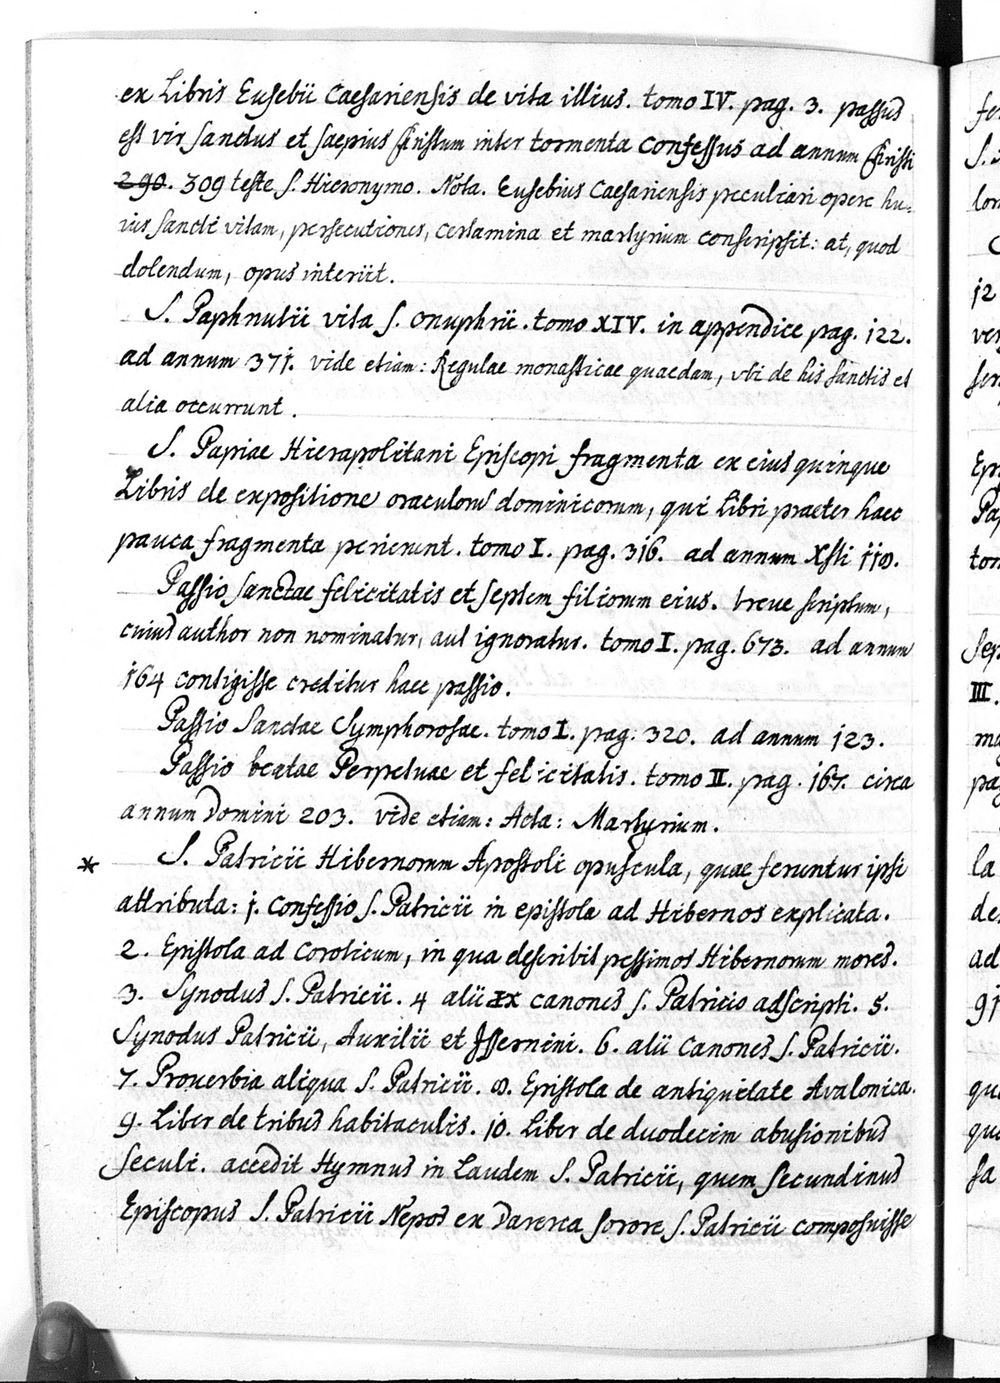 ex Libris Eusebii Caesariensis de vita illius. tomo IV. pag. 3. passus
est vir sanctus et saepius Christum inter tormenta confessus ad annum Christi
290. 309 teste S. Hieronymo. Nota. Eusebius Caesariensis peculiari opere hu-
ius sancti vitam, persecutiones, certamina et martyrium conscripsit: at, quod
dolendum, opus interiit.
S. Paphnutii vita S. Onuphrii. tomo XIV. in appendice pag. 122.
ad annum 371. vide etiam: Regulae monasticae quaedam, ubi de his sanctis et
alia occurrunt.
S. Papiae Hierapolitani Episcopi fragmenta ex eius quinque
Libris de expositione oraculorum dominicorum, qui Libri praeter haec
pauca fragmenta perierunt. tomo I. pag. 316. ad annum Xsti 118.
Passio sanctae felicitatis et septem filiorum eius. breve scriptum,
cuius author non nominatur, aut ignoratus. tomo I. pag. 673. ad annum
164 contigisse creditur haec passio.
Passio Sanctae Symphorosae. tomo I. pag. 320. ad annum 123.
Passio beatae Perpetuae et felicitatis. tomo II. pag. 167. circa
annum Domini 203. vide etiam: Acta: Martyrium.
* S. Patricii Hibernorum Apostoli opuscula, quae feruntur ipsi
attributa: 1. Confessio S. Patricii in epistola ad Hibernos explicata.
2. Epistola ad Coroticum, in qua describit pessimos Hibernorum mores.
3. Synodus S. Patricii. 4 alii IX canones S. Patricio adscripti. 5.
Synodus Patricii, Auxilii et Issernini. 6. alii Canones S. Patricii.
7. Proverbia aliqua S. Patricii. 8. Epistola de antiquitate Avalonica.
9. Liber de tribus habitaculis. 10. Liber de duodecim abusionibus
seculi. accedit Hymnus in Laudem S. Patricii, quem Secundinus
Episcopus S. Patricii Nepos ex Darerca sorore S. Patricii composuisse